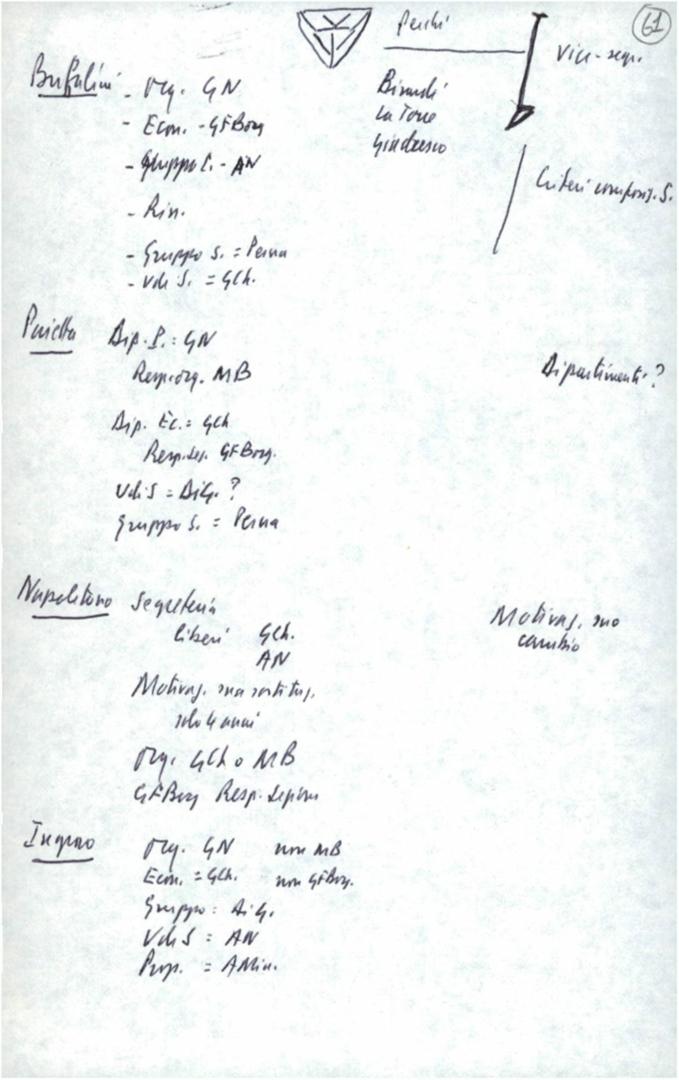 61
perché
Vice-segr.
Bufalini - Org. GN
- Econ. - GFBorg
- Gruppo C. - AN
- Rin.
- Gruppo S. = Perna
- Udi S. = GCh.
La Torre
Criteri composiz. S.
Pajetta Dip. P. = GN
Resp. org. MB
Dipartimenti?
Dip. Ec. = GCh
Resp. sez. GFBorg.
UdiS = DiG. ?
Gruppo S. = Perna
Napolitano Segreteria
liberi GCh.
AN
Motivaz. suo
cambio
Motivaz. sua sostituz.
solo 4 anni
Org. GCh o MB
GFBorg Resp. sezione
Ingrao Org. GN non MB
Econ. = GCh. non GFBorg.
Gruppo = DiG.
UdiS = AN
Prop. = AMin.